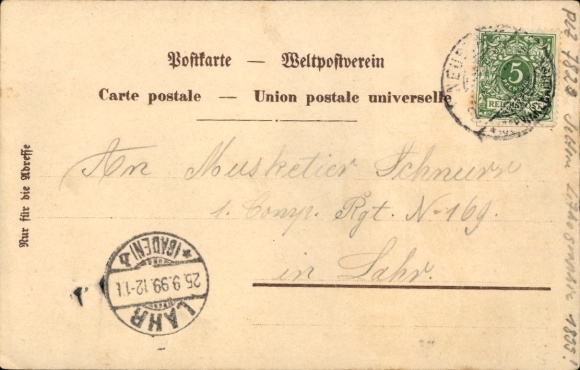 Postkarte — Weltpostverein
Carte postale — Union postale universelle
Nur für die Adresse
An Musketier Schnurr
1. Comp. Rgt. N–169.
in Lahr.
5
REICHSPOST
LAHR
25.9.99.12-1N
* (BADEN) b
1899!